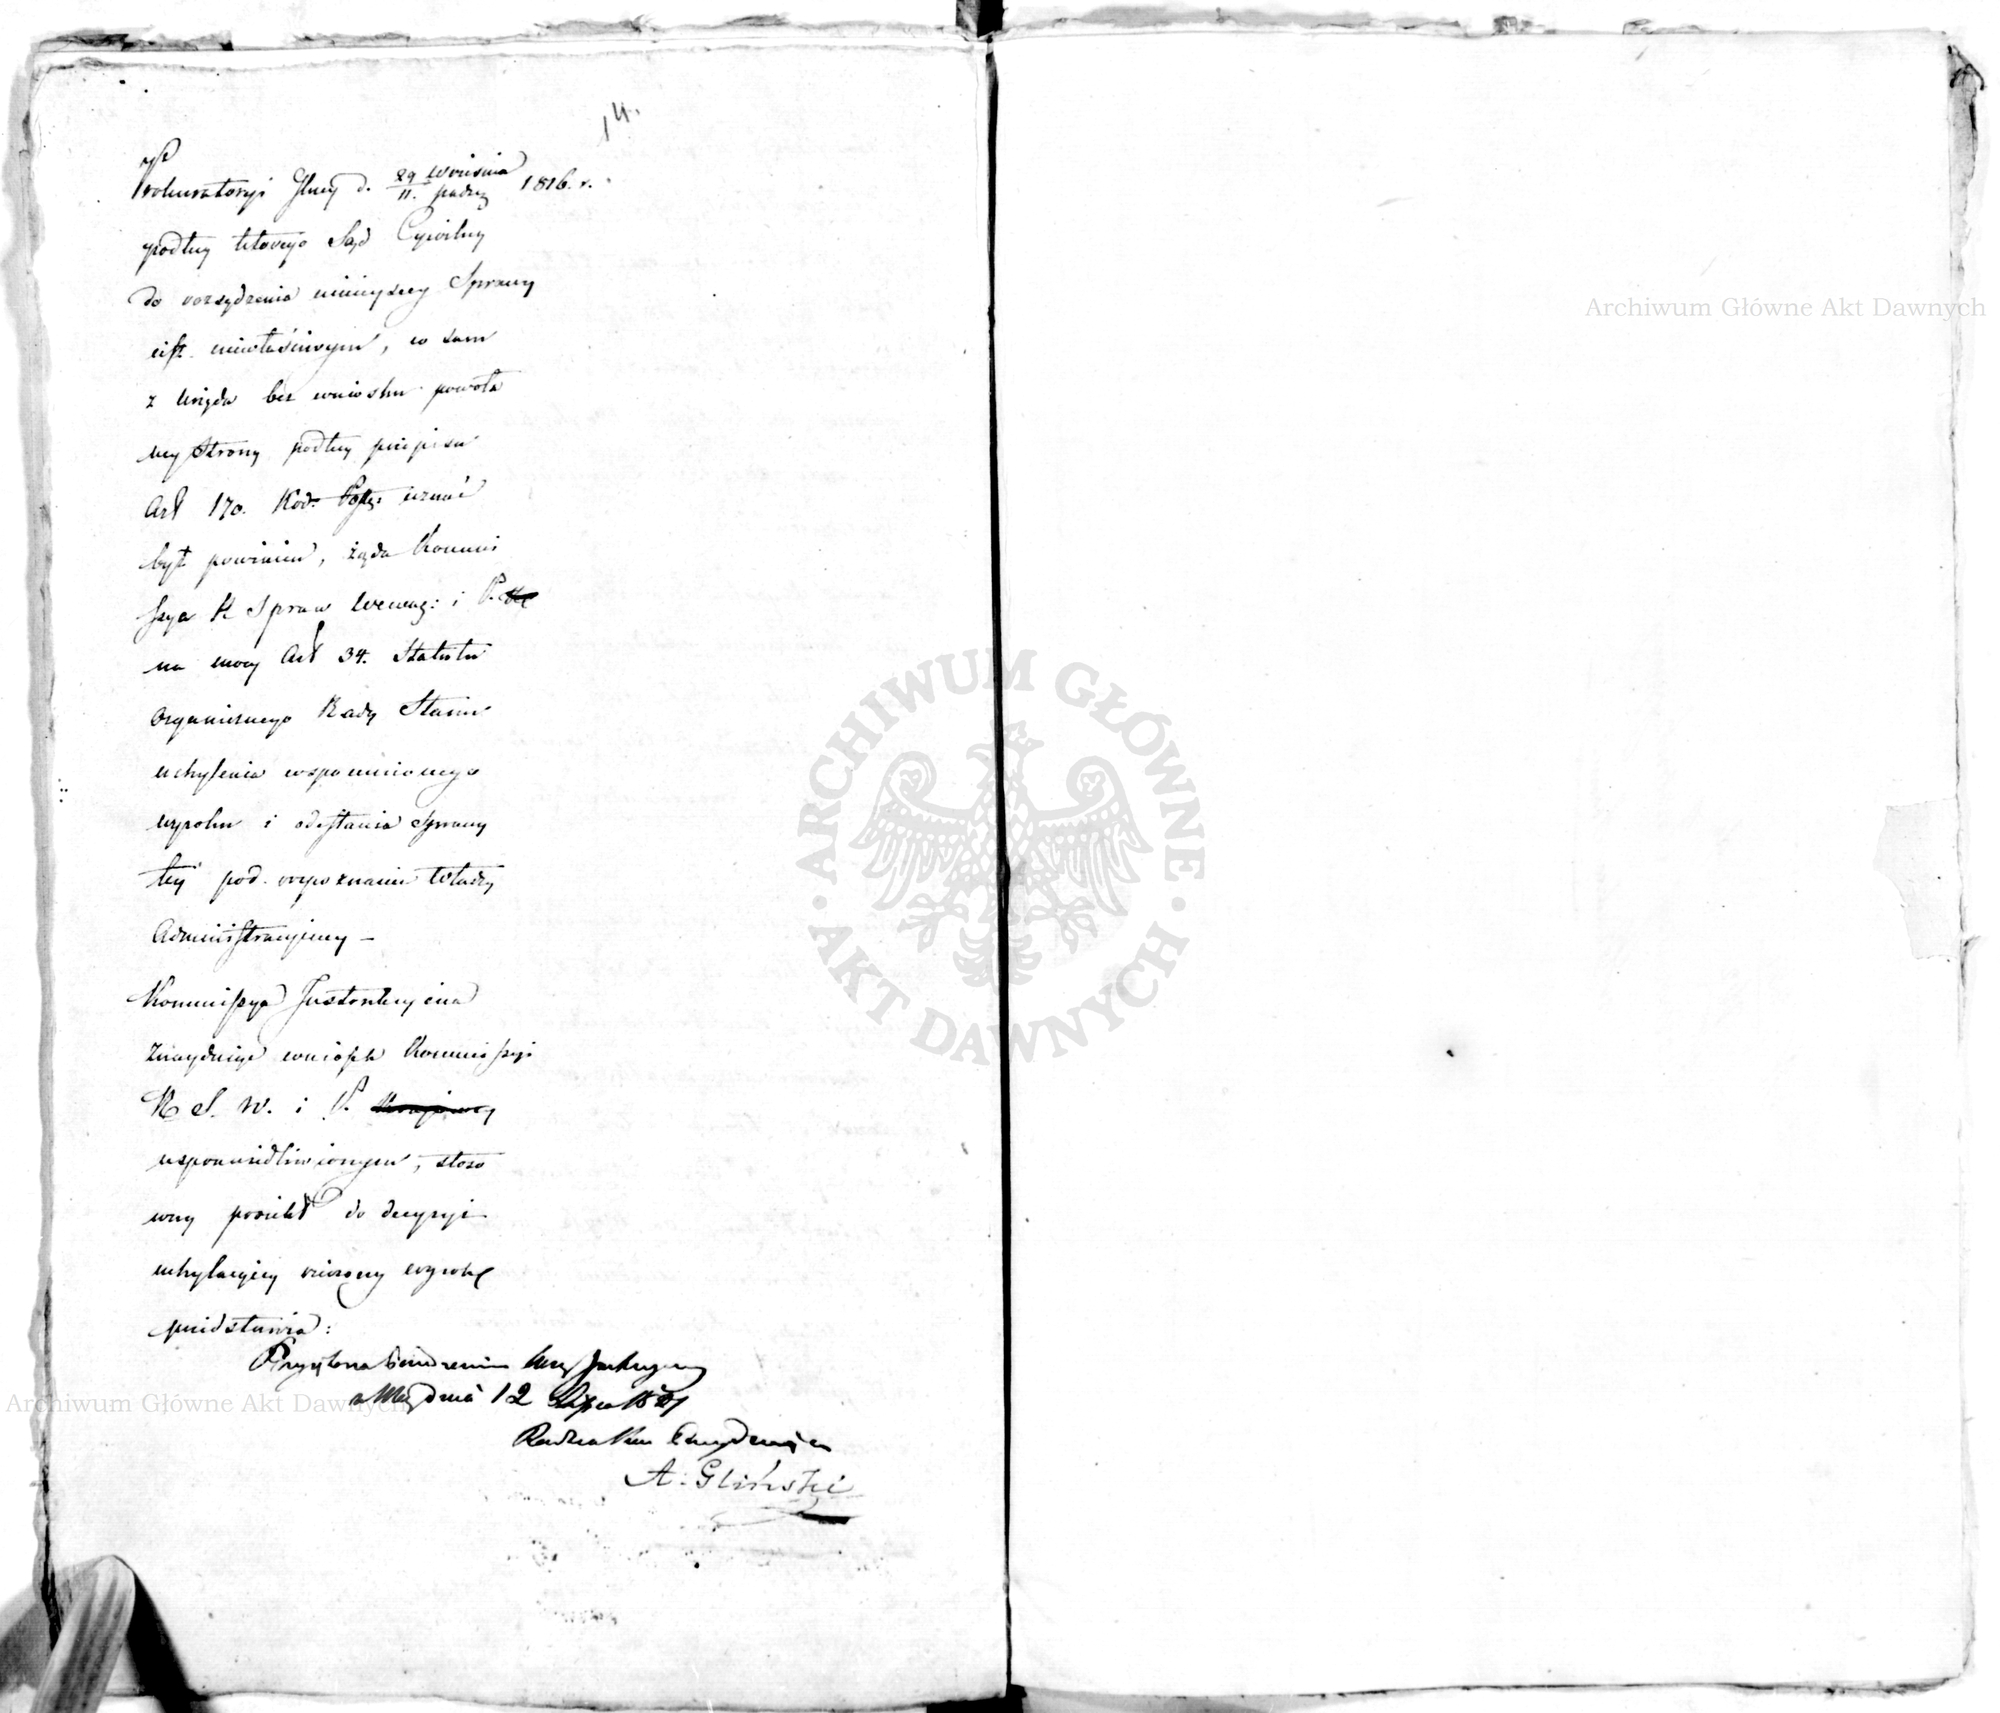 14.
Prokuratoryi Jlney d. 29 Września / 11. padz 1816. r.
podług którego Sąd Cywilny
do rozsądzenia ninieyszey Sprawy
niewłaściwym, w sam
z Urzędu bez wniosku powoła
ney Strony podług przepisu
Art 170. Kod. Postę: uznać
był powinien, żąda Kommis
sya R Spraw Wewnę: i P.
na mocy Art 34. Statutu
Organicznego Rady Stanu
uchylenia wspomnionego
wyroku i odesłania Sprawy
tey pod rozpoznanie Władzy
Administracyiney —
Kommissya Instrukcyina
Znayduiąc wniosek Kommissyi
R S. W. i P.
usprawiedliwionym, stoso
wny proiekt do decyzyi
uchylaiącey rzeczony wyrok
przedstawia:
dnia 12 Lipca 1821
A: Gliński
Archiwum Główne Akt Dawnych
Archiwum Główne Akt Dawnych
ARCHIWUM GŁÓWNE
AKT DAWNYCH